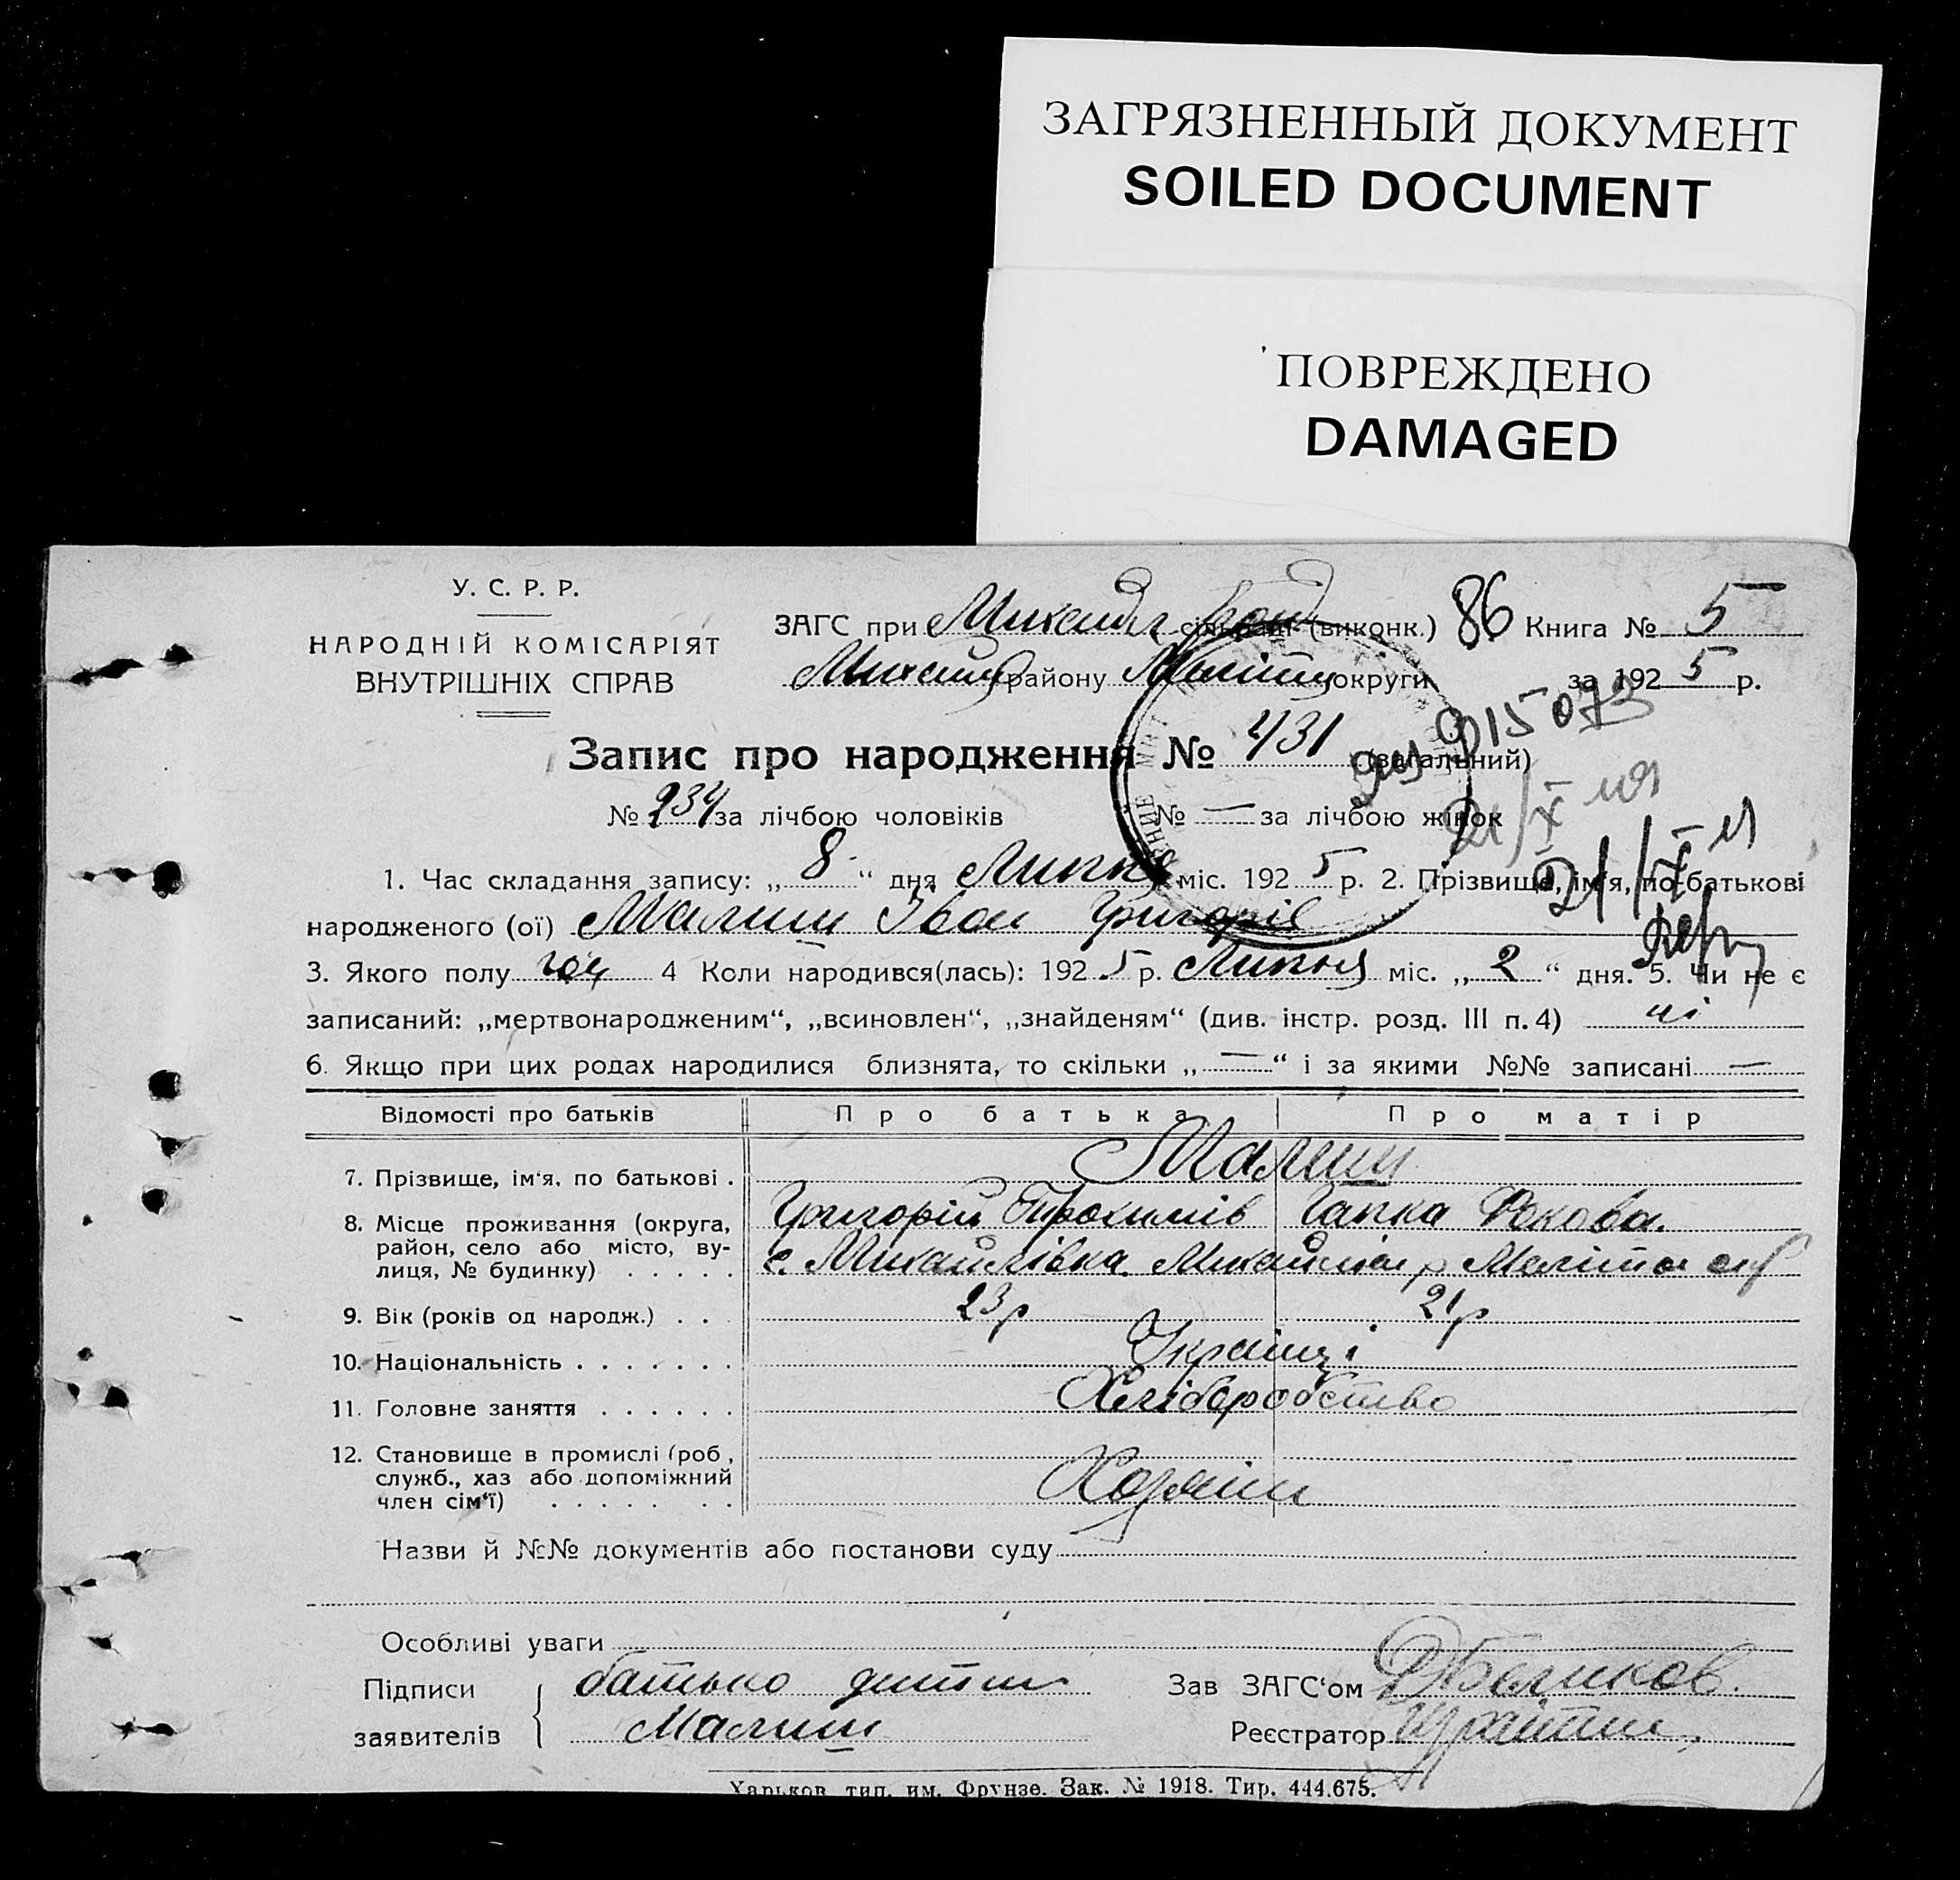 ЗАГРЯЗНЕННЫЙ ДОКУМЕНТ
SOILED DOCUMENT
ПОВРЕЖДЕНО
DAMAGED
У. С. Р. Р.
НАРОДНІЙ КОМІСАРІЯТ
ВНУТРІШНІХ СПРАВ
ЗАГС при Михайл сільраді (виконк.) 86 Книга № 5
Михайл району Меліт округи за 1925 р.
915073
Запис про народження № 431 (загальний)
№ 234 за лічбою чоловіків № — за лічбою жінок
21/X
1. Час складання запису: „8“ дня Липня міс. 1925 р. 2. Прізвище, ім'я, по-батькові
народженого (ої) Малиш Іван Григорів
3. Якого полу чол 4 Коли народився(лась): 1925 р. Липня міс. „2“ дня. 5. Чи не є
записаний: „мертвонародженим“, „всиновлен“, „знайденям“ (див. інстр. розд. III п. 4) ні
6. Якщо при цих родах народилися близнята, то скільки „—“ і за якими №№ записані —
Відомості про батьків Про батька Про матір
7. Прізвище, ім'я, по батькові . Малиш
Григорій Трохимів Гапка Фокова.
8. Місце проживання (округа,
район, село або місто, ву-
лиця, № будинку) . . . . . с. Михайлівка Михайлів р Меліто окр
9. Вік (років од народж.) . . . 23 р 21 р
10. Національність . . . . . . . Українці
11. Головне заняття . . . . . . Хліборобство
12. Становище в промислі (роб,
служб., хаз або допоміжний
член сім'ї) . . . . . . . Хозяїн
Назви й №№ документів або постанови суду
Особливі уваги
Підписи заявителів батько дитини
Малиш
Зав ЗАГС'ом Беликов.
Реєстратор
Харьков, тип. им. Фрунзе. Зак. № 1918. Тир. 444.675.